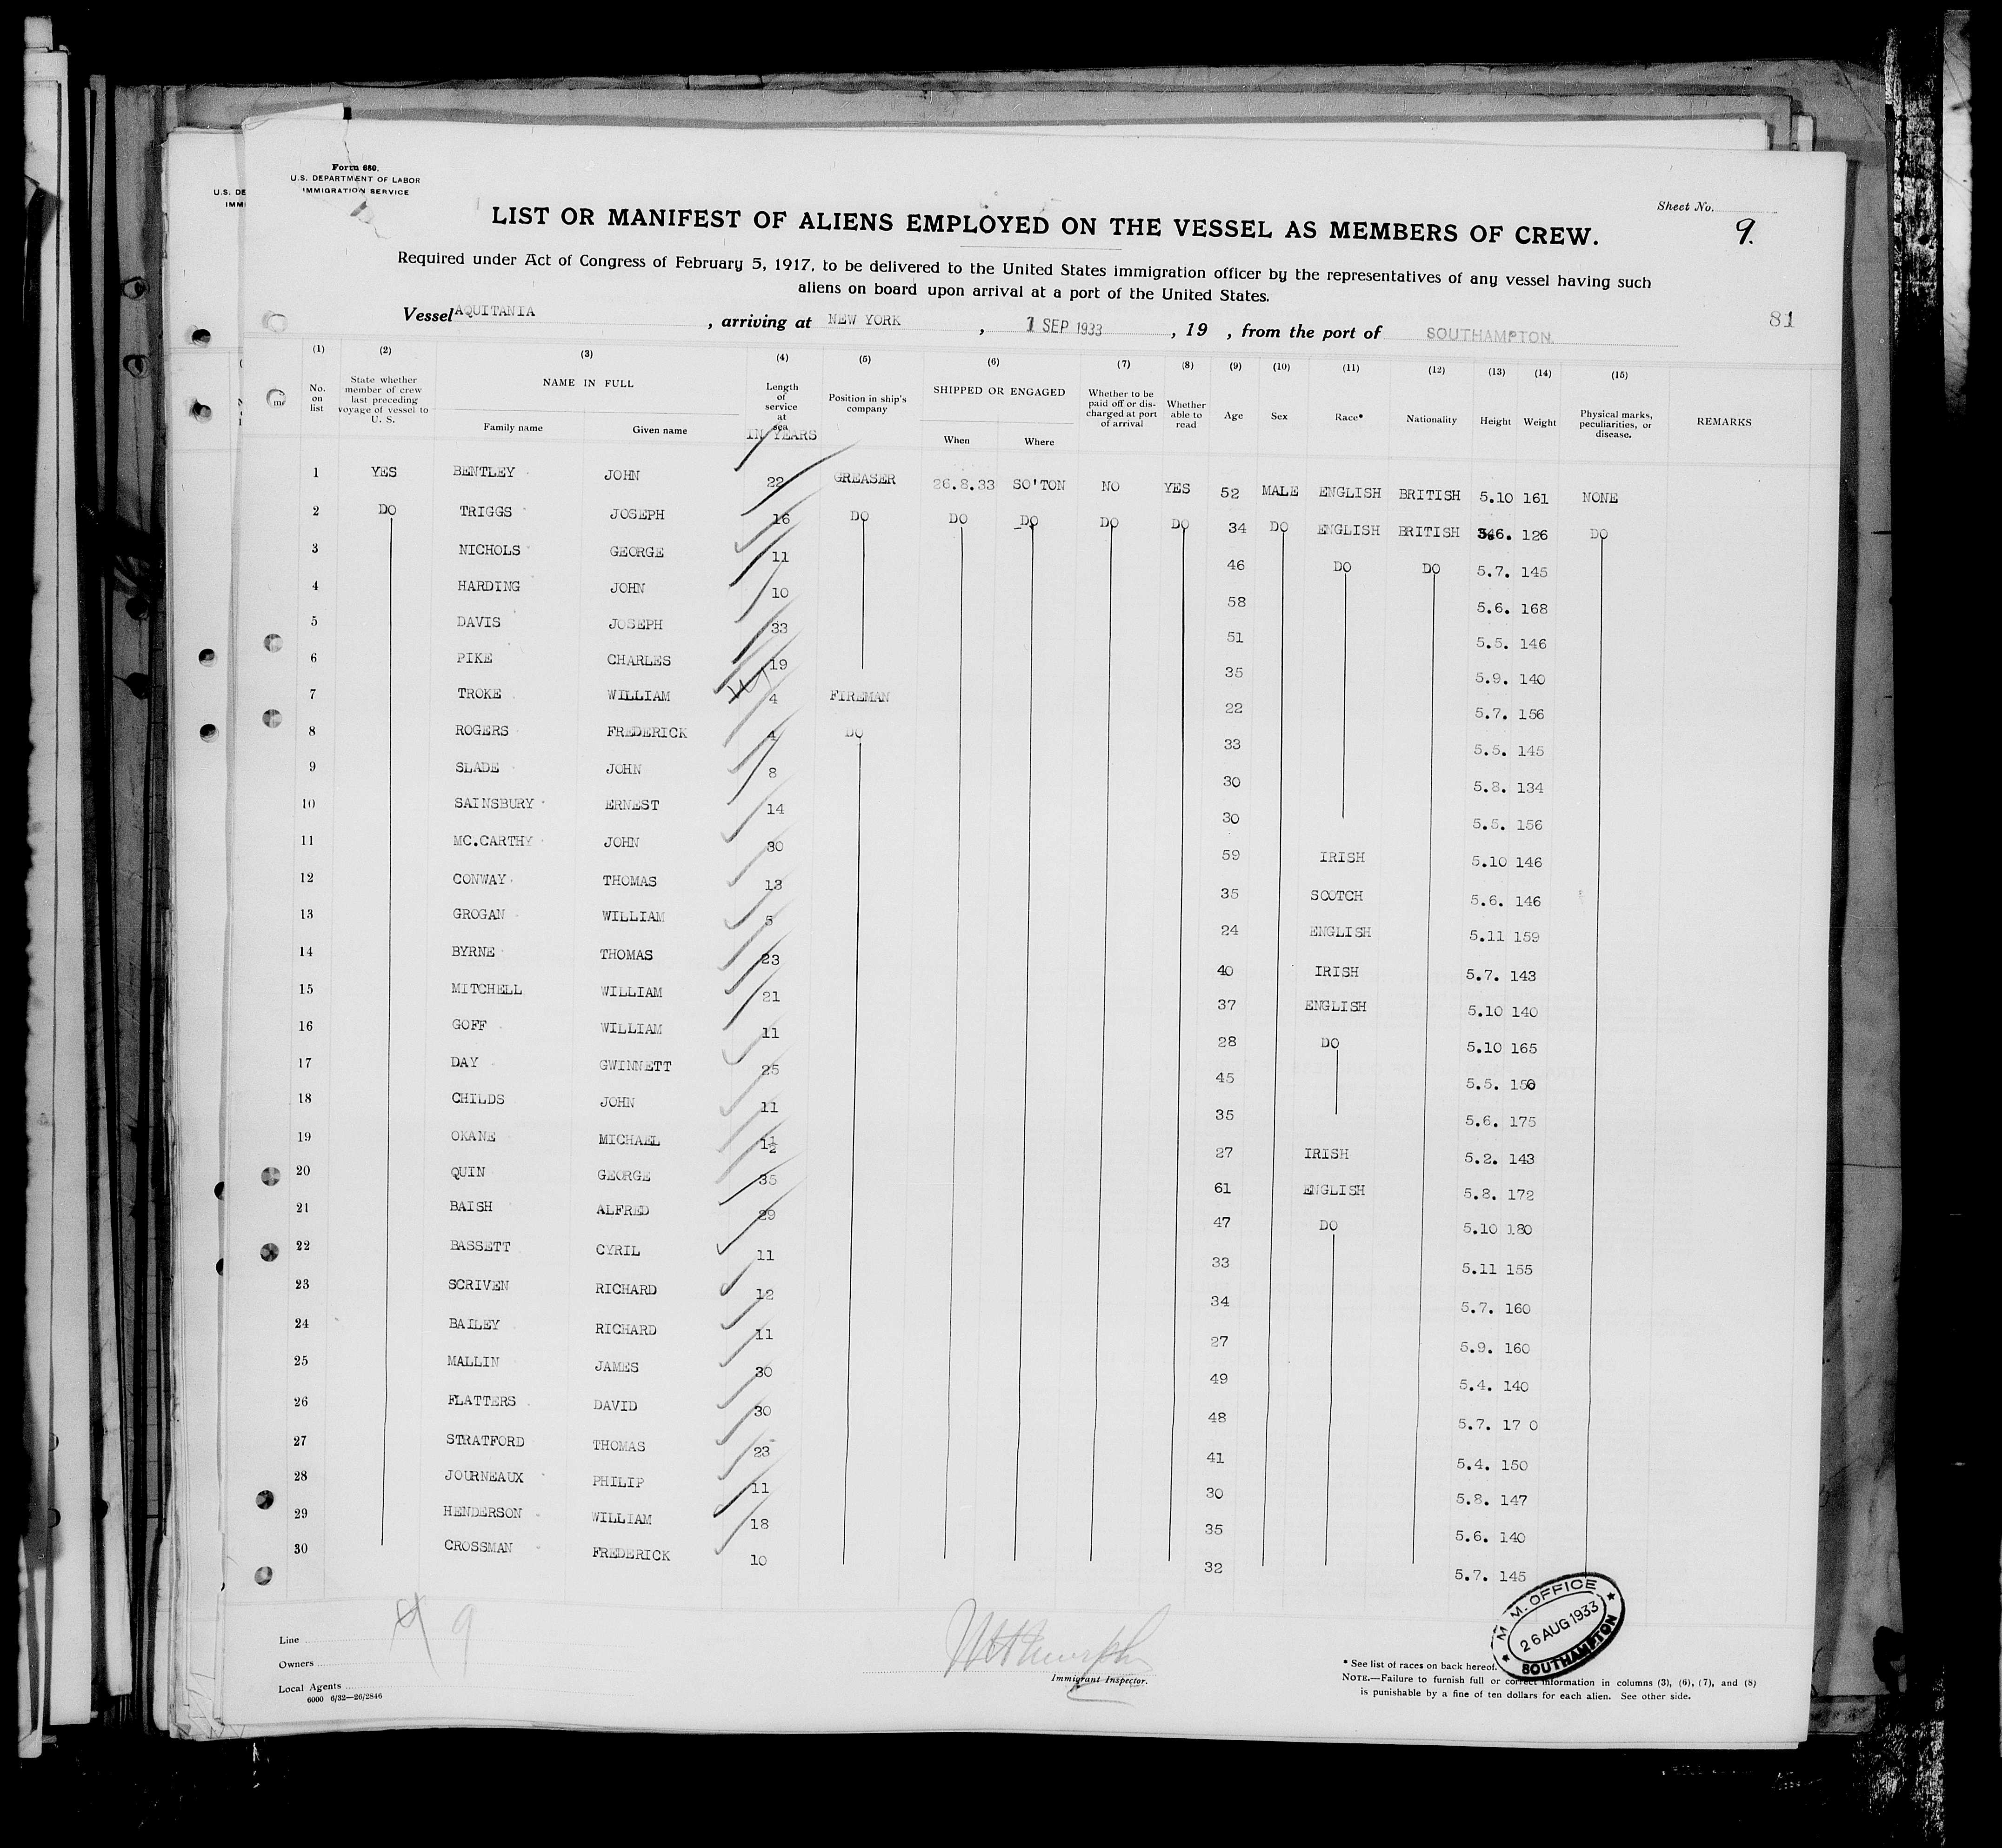 Form 680.
U.S. DEPARTMENT OF LABOR
IMMIGRATION SERVICE
U.S. DE
IMMI
Sheet No.
9.
LIST OR MANIFEST OF ALIENS EMPLOYED ON THE VESSEL AS MEMBERS OF CREW.
Required under Act of Congress of February 5, 1917, to be delivered to the United States immigration officer by the representatives of any vessel having such
aliens on board upon arrival at a port of the United States.
Vessel AQUITANIA, arriving at NEW YORK, 1 SEP 1933, 19 , from the port of SOUTHAMPTON.
81
(1) (2) (3) (4) (5) (6) (7) (8) (9) (10) (11) (12) (13) (14) (15)
No. on list State whether member of crew last preceding voyage of vessel to U. S. NAME IN FULL Family name Given name Length of service at sea IN YEARS Position in ship's company SHIPPED OR ENGAGED When Where Whether to be paid off or discharged at port of arrival Whether able to read Age Sex Race* Nationality Height Weight Physical marks, peculiarities, or disease. REMARKS
1 YES BENTLEY JOHN 22 GREASER 26.8.33 SO'TON NO YES 52 MALE ENGLISH BRITISH 5.10 161 NONE
2 DO TRIGGS JOSEPH 16 DO DO DO DO DO 34 DO ENGLISH BRITISH 126 DO
3 NICHOLS GEORGE 11 46 DO DO 5.7. 145
4 HARDING JOHN 10 58 5.6. 168
5 DAVIS JOSEPH 33 51 5.5. 146
6 PIKE CHARLES 19 35 5.9. 140
7 TROKE WILLIAM 4 FIREMAN 22 5.7. 156
8 ROGERS FREDERICK 4 DO 33 5.5. 145
9 SLADE JOHN 8 30 5.8. 134
10 SAINSBURY ERNEST 14 30 5.5. 156
11 MC.CARTHY JOHN 30 59 IRISH 5.10 146
12 CONWAY THOMAS 13 35 SCOTCH 5.6. 146
13 GROGAN WILLIAM 5 24 ENGLISH 5.11 159
14 BYRNE THOMAS 23 40 IRISH 5.7. 143
15 MITCHELL WILLIAM 21 37 ENGLISH 5.10 140
16 GOFF WILLIAM 11 28 DO 5.10 165
17 DAY GWINNETT 25 45 5.5. 150
18 CHILDS JOHN 11 35 5.6. 175
19 OKANE MICHAEL 1½ 27 IRISH 5.2. 143
20 QUIN GEORGE 35 61 ENGLISH 5.8. 172
21 BAISH ALFRED 29 47 DO 5.10 180
22 BASSETT CYRIL 11 33 5.11 155
23 SCRIVEN RICHARD 12 34 5.7. 160
24 BAILEY RICHARD 11 27 5.9. 160
25 MALLIN JAMES 30 49 5.4. 140
26 FLATTERS DAVID 30 48 5.7. 17 0
27 STRATFORD THOMAS 23 41 5.4. 150
28 JOURNEAUX PHILIP 11 30 5.8. 147
29 HENDERSON WILLIAM 18 35 5.6. 140
30 CROSSMAN FREDERICK 10 32 5.7. 145
M. M. OFFICE
26 AUG 1933
SOUTHAMPTON
9
Line
Owners
Local Agents
6000 6/32—26/2846
Immigrant Inspector.
* See list of races on back hereof.
NOTE.—Failure to furnish full or correct information in columns (3), (6), (7), and (8)
is punishable by a fine of ten dollars for each alien. See other side.